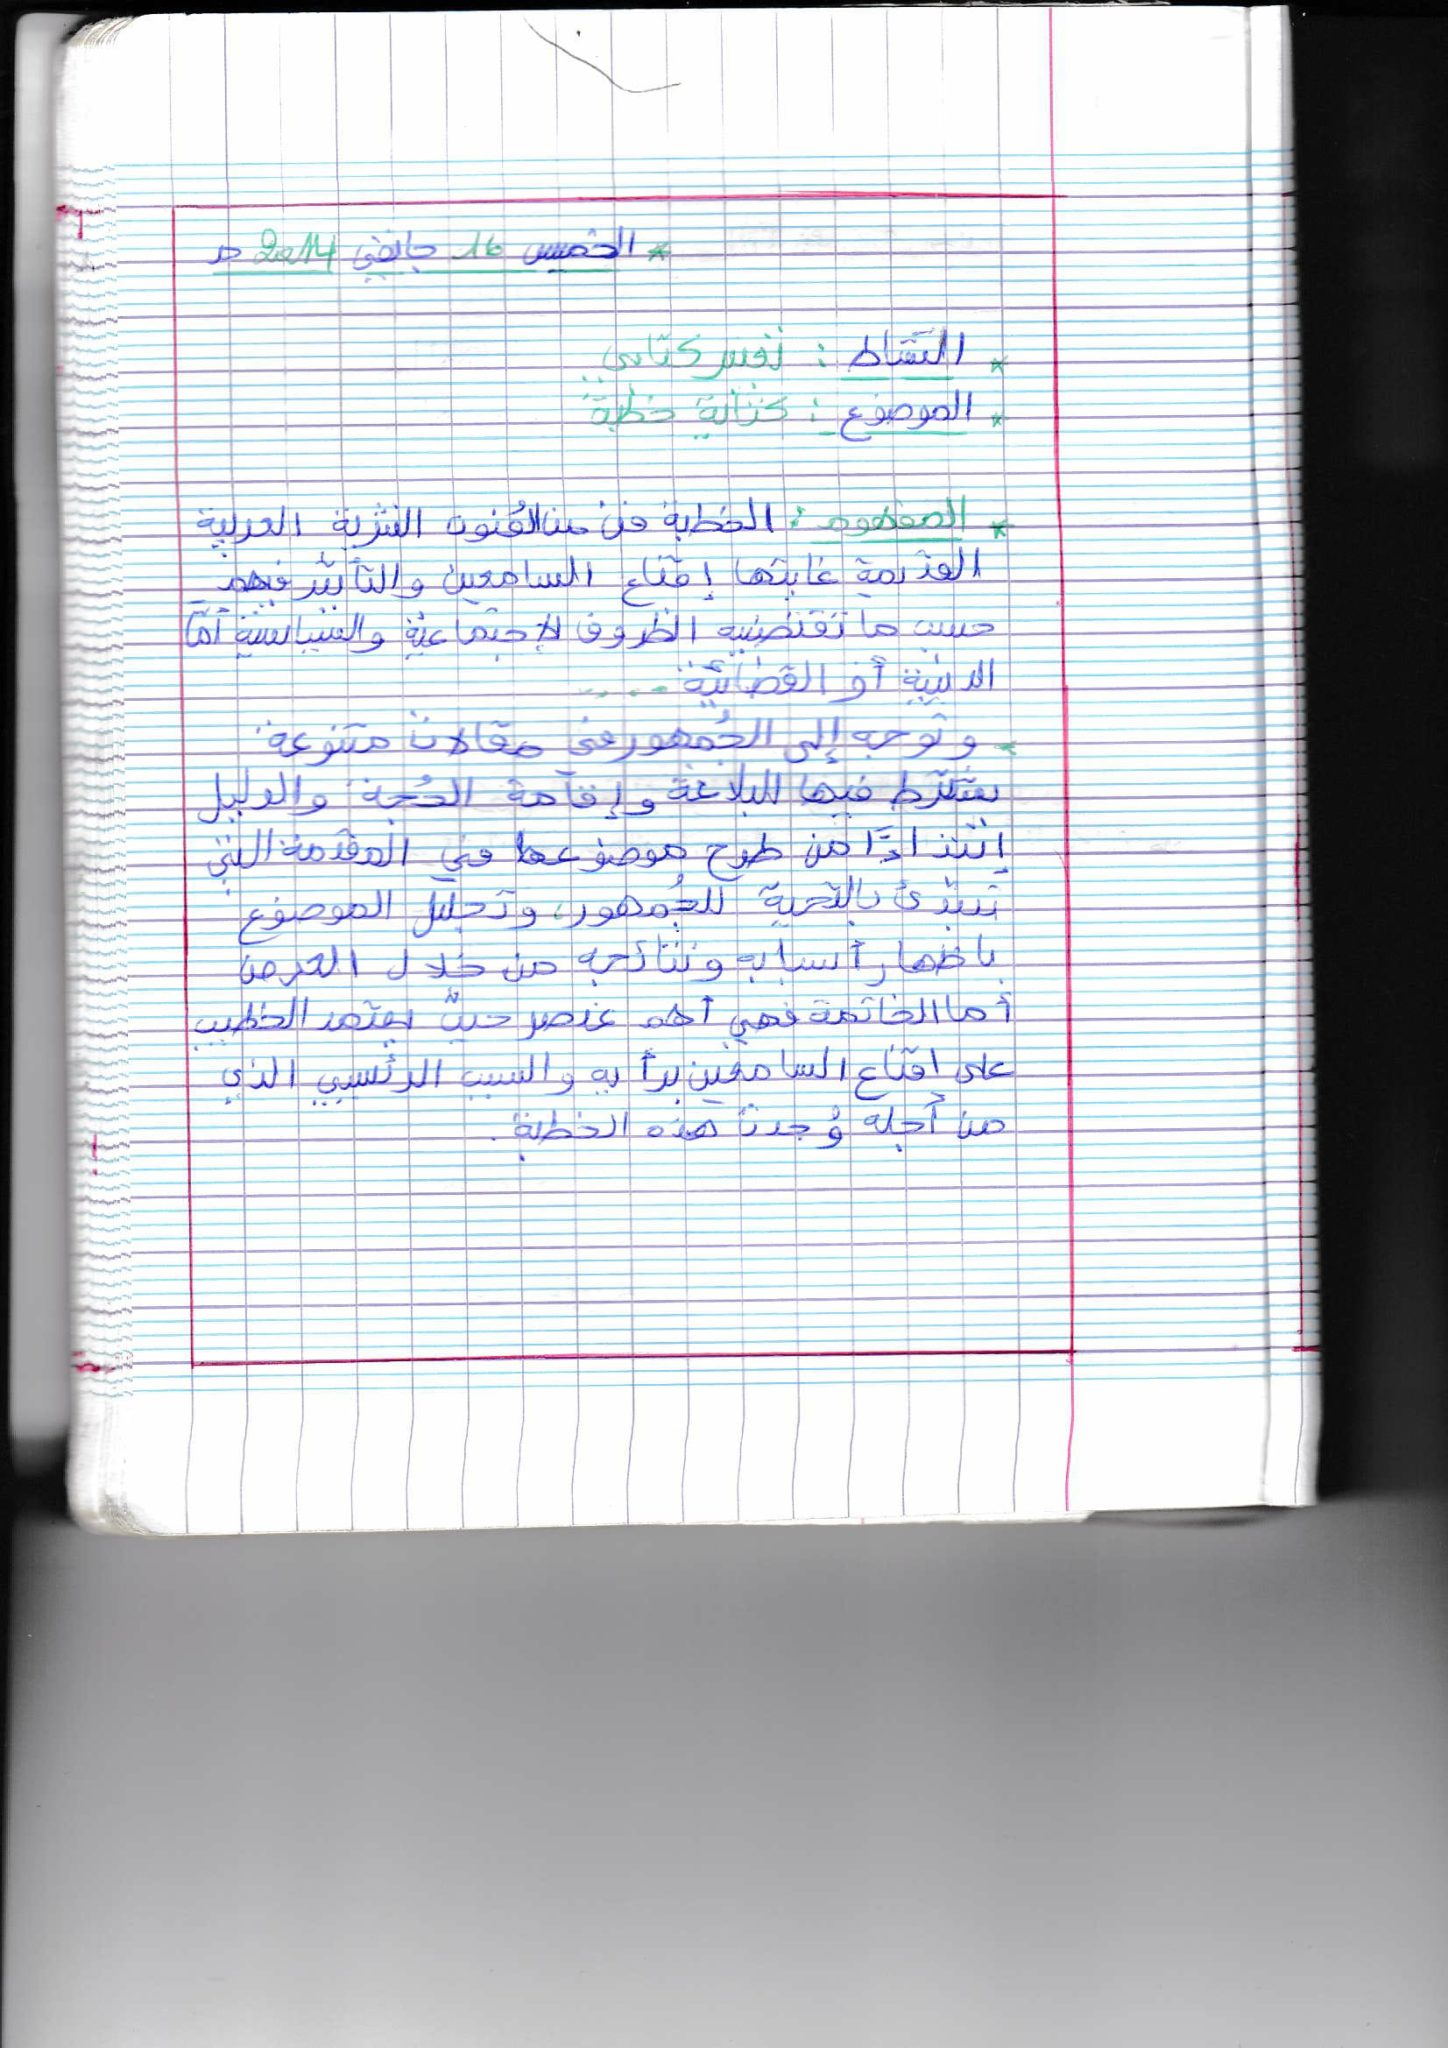 * الخميس 16 جانفي 2014 م
* النشاط : تعبير كتابي
* الموضوع : كتابة خطبة
* المفهوم : الخطبة فن من الفُنون النثرية العربية
القديمة غايتها إقناع السامعين والتأثير فيهم
حسب ما تقتضيه الظروف الاجتماعية والسياسية أمّا
الدينية أو القضائية ....
- وتوجه إلى الجُمهور في مقالات متنوعة
يشترط فيها البلاغة وإقامة الحُجة والدليل
إبتداءًا من طرح موضوعها في المقدمة التي
تبتدئ بالتحية للجُمهور، وتحليل الموضوع
باظهار أسبابه ونتائجه من خلال العرض
أما الخاتمة فهي أهم عنصر حيثُ يعتمد الخطيب
على اقناع السامعين برأيه والسبب الرئسيي الذي
من أجله وُجدت هذه الخطبة.